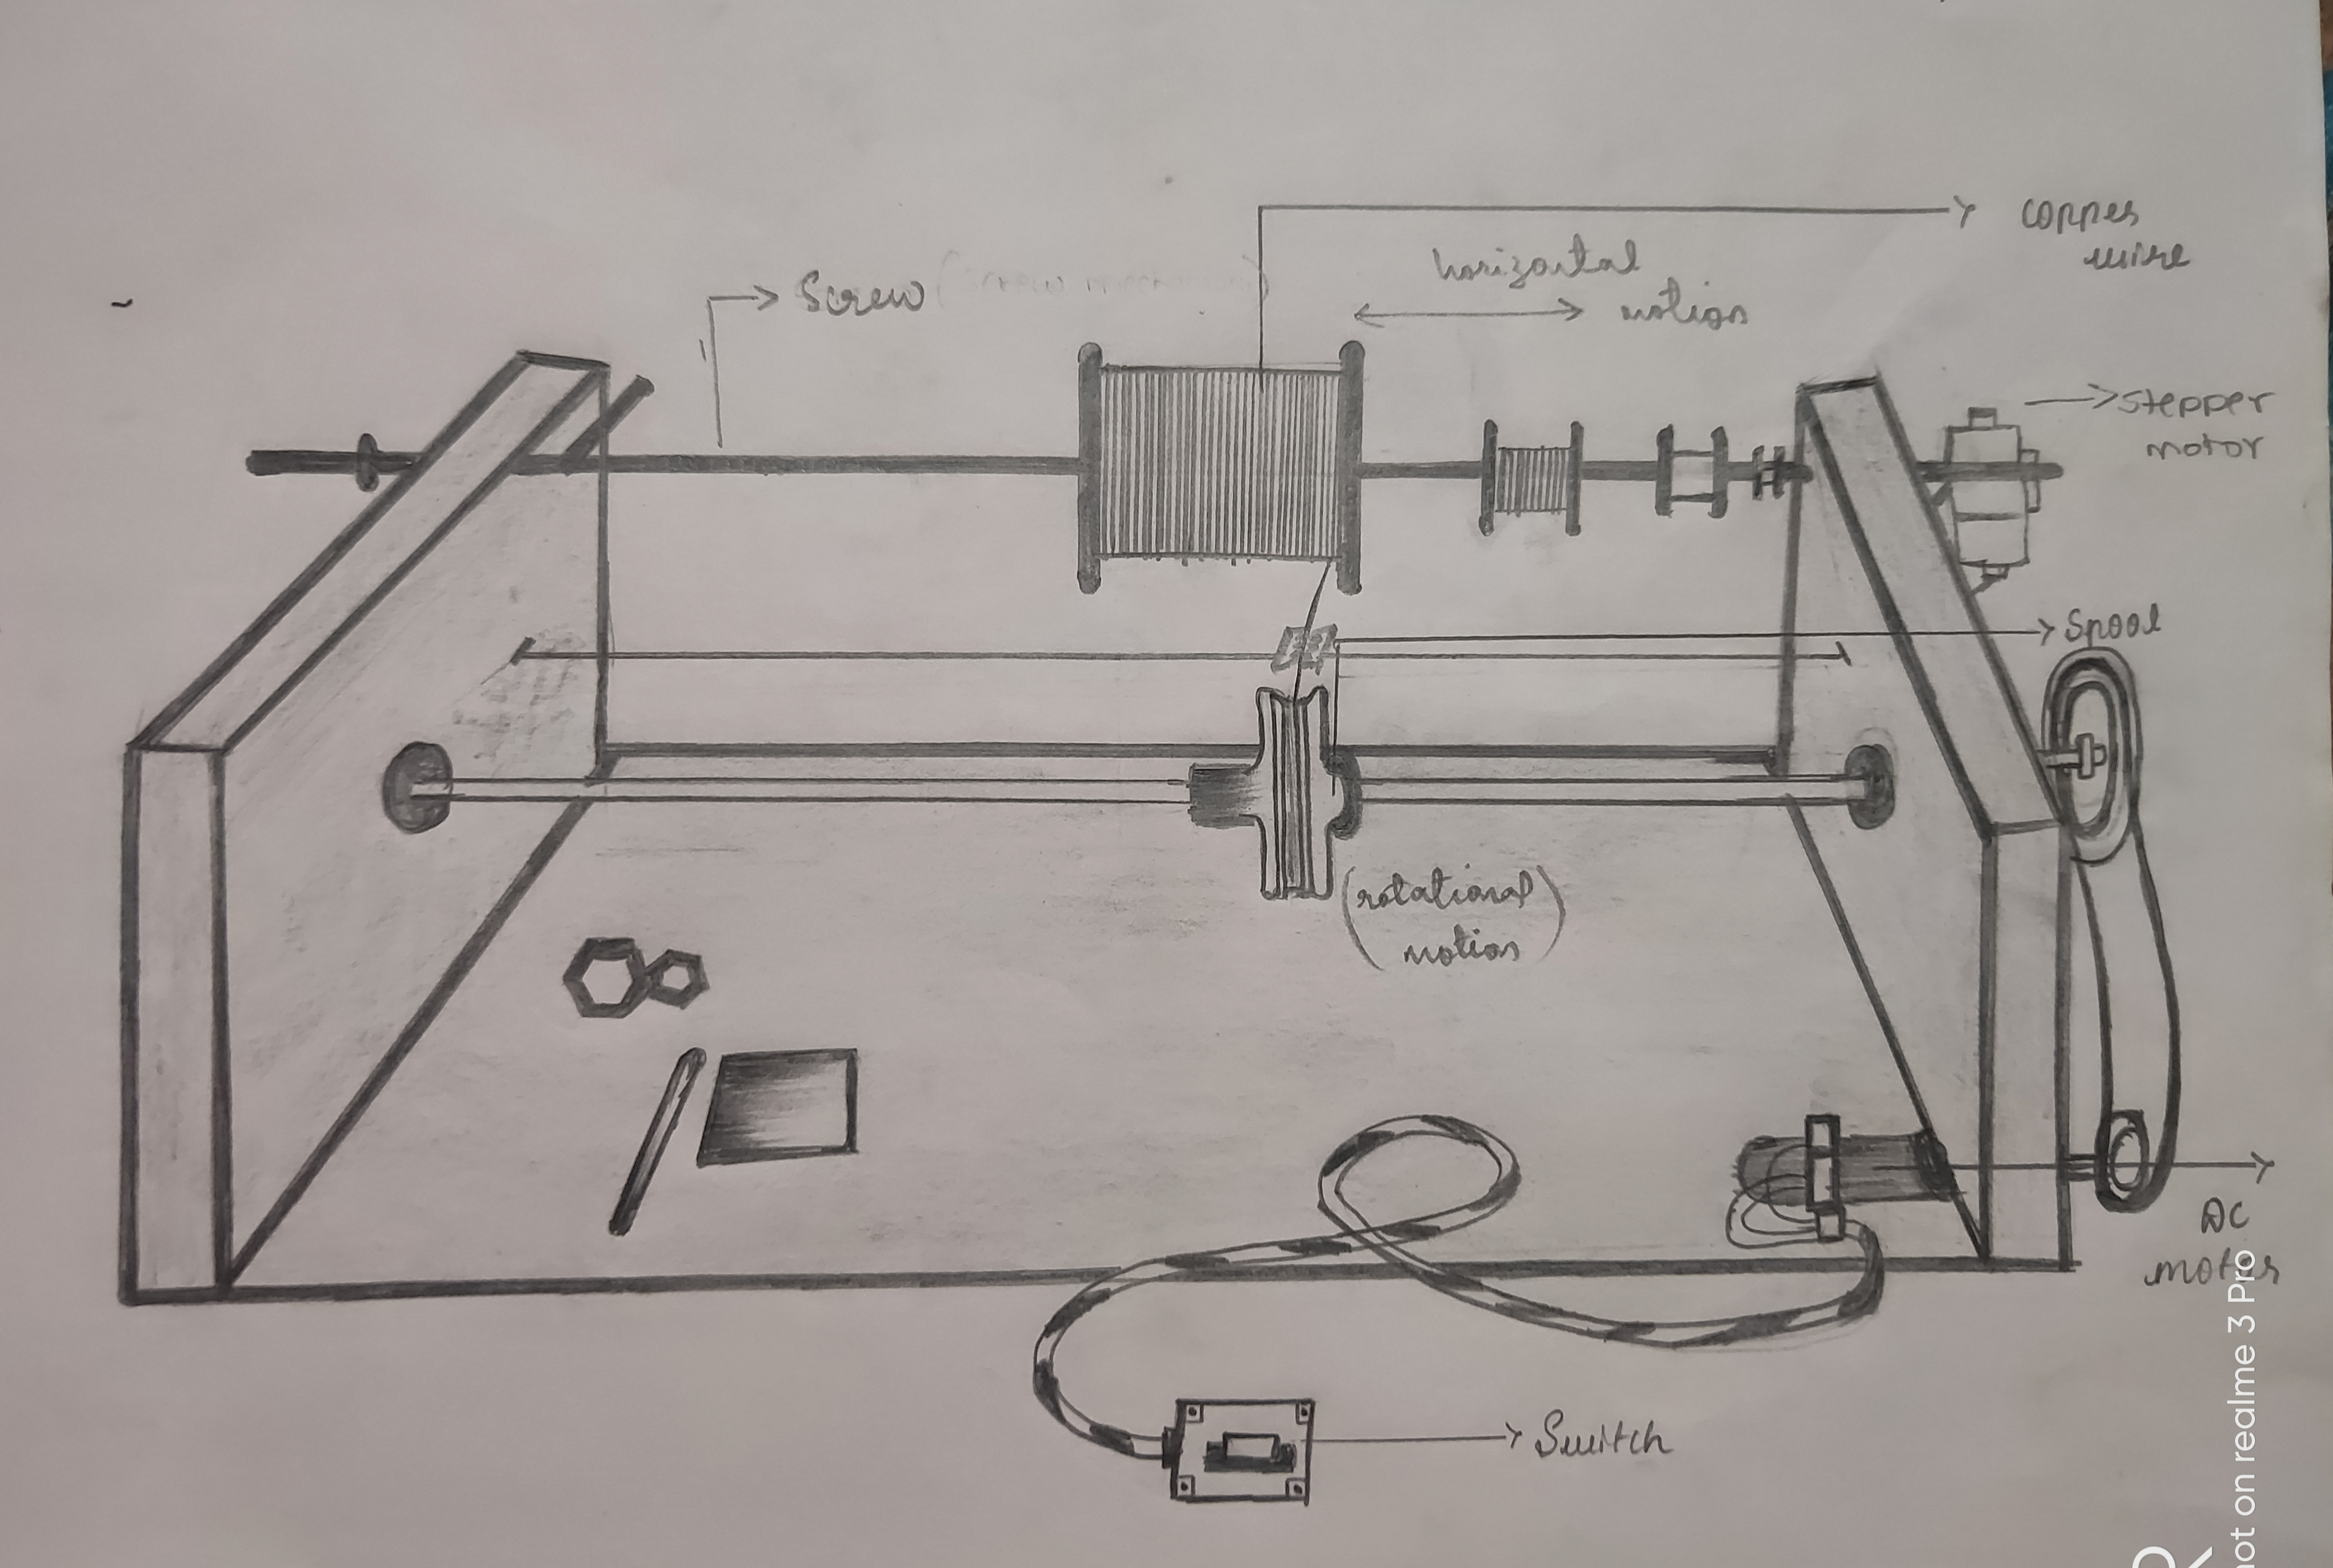 copper
wire
horizontal
motion
Screw
stepper
motor
Spool
(rotational
motion)
DC
motor
Switch
not on realme 3 Pro